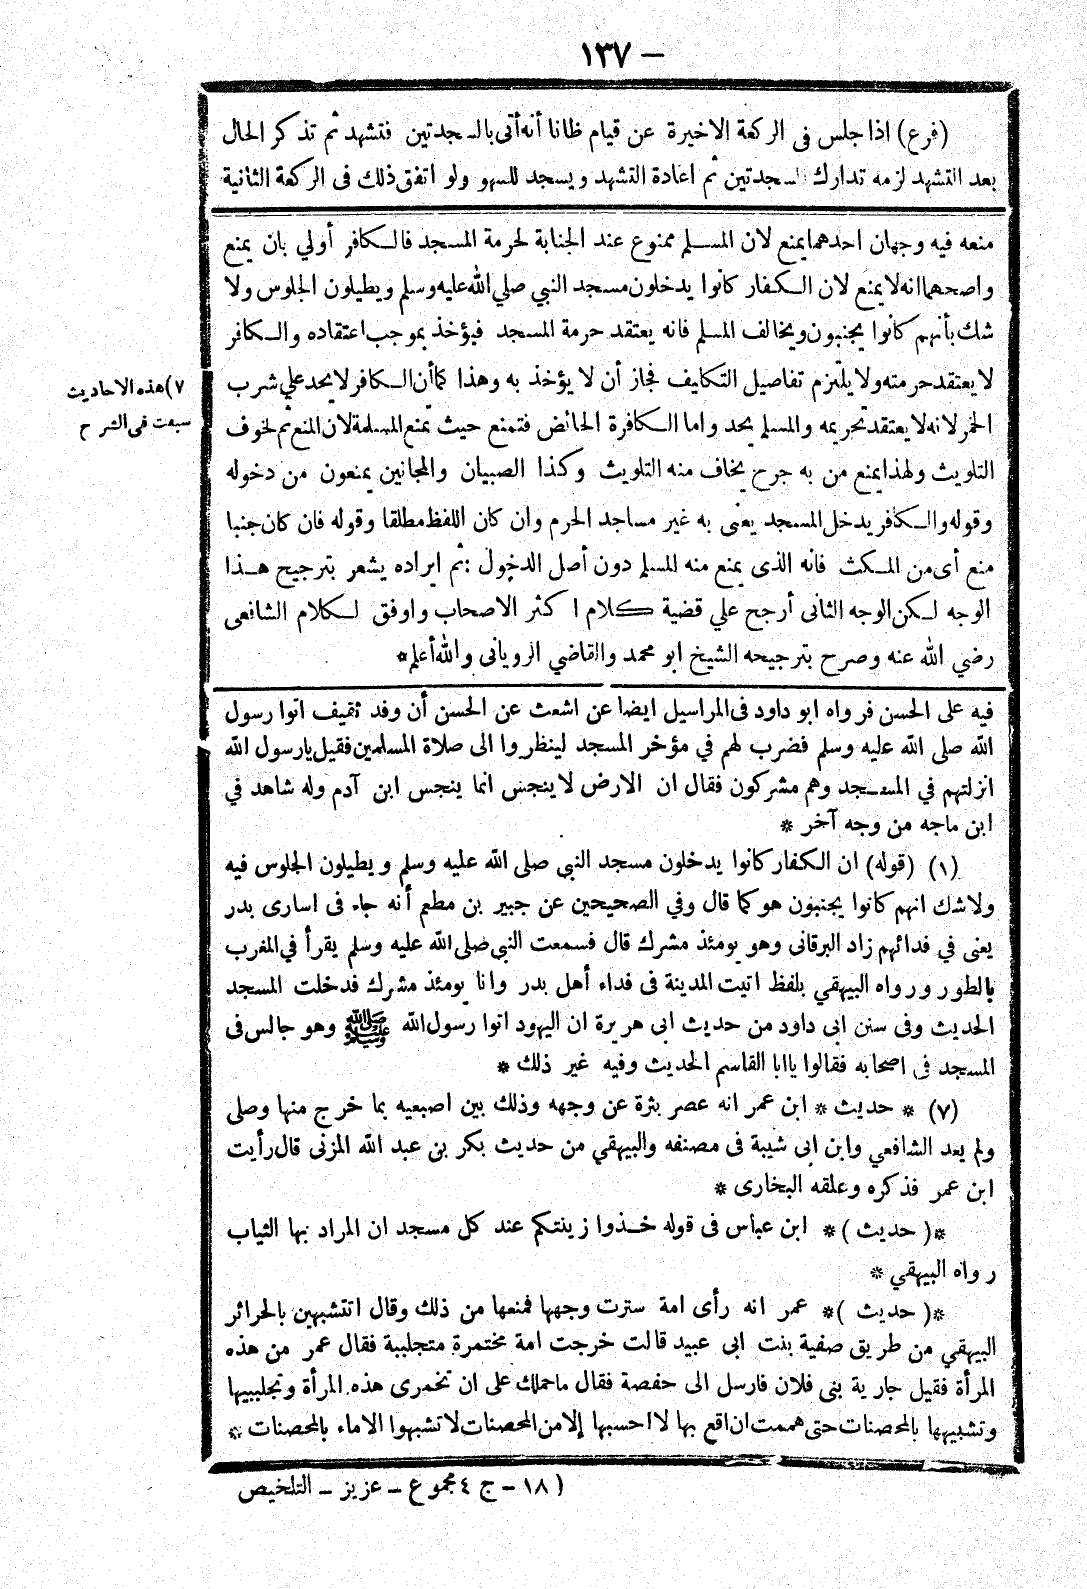 – ١٣٧
(فرع) اذا جلس فى الركعة الاخيرة عن قيام ظانا أنه أتى بالسجدتين فتشهد ثم تذكر الحال
بعد التشهد لزمه تدارك السجدتين ثم اعادة التشهد ويسجد للسهو ولو اتفق ذلك فى الركعة الثانية
منعه فيه وجهان احدهما يمنع لان المسلم ممنوع عند الجنابة لحرمة المسجد فالكافر أولي بان يمنع
واصحهما انه لا يمنع لان الكفار كانوا يدخلون مسجد النبي صلي الله عليه وسلم ويطيلون الجلوس ولا
شك بأنهم كانوا يجنبون ويخالف المسلم فانه يعتقد حرمة المسجد فيؤخذ بموجب اعتقاده والكافر
لا يعتقد حرمته ولا يلتزم تفاصيل التكايف فجاز أن لا يؤخذ به وهذا كما أن الكافر لا يحد علي شرب
الخمر لانه لا يعتقد تحريمه والمسلم يحد واما الكافرة الحائض فتمنع حيث تمنع المسلمة لان المنع ثم لخوف
التلويث ولهذا يمنع من به جرح يخاف منه التلويث وكذا الصبيان والمجانين يمنعون من دخوله
وقوله والكافر يدخل المسجد يعنى به غير مساجد الحرم وان كان اللفظ مطلقا وقوله فان كان جنبا
منع أى من المكث فانه الذى يمنع منه المسلم دون أصل الدخول : ثم ايراده يشعر بترجيح هذا
الوجه لكن الوجه الثانى أرجح علي قضية كلام اكثر الاصحاب واوفق لكلام الشافعى
رضي الله عنه وصرح بترجيحه الشيخ ابو محمد والقاضي الرويانى والله أعلم *
٧) هذه الاحاديث
سبقت فى الشرح
فيه على الحسن فرواه ابو داود فى المراسيل ايضا عن اشعث عن الحسن أن وفد ثقيف اتوا رسول
الله صلى الله عليه وسلم فضرب لهم في مؤخر المسجد لينظروا الى صلاة المسلمين فقيل يارسول الله
انزلتهم في المسجد وهم مشركون فقال ان الارض لا ينجس انما ينجس ابن آدم وله شاهد في
ابن ماجه من وجه آخر *
(١) (قوله) ان الكفار كانوا يدخلون مسجد النبي صلى الله عليه وسلم ويطيلون الجلوس فيه
ولا شك انهم كانوا يجنبون هو كما قال وفي الصحيحين عن جبير بن مطعم أنه جاء فى اسارى بدر
يعنى في فدائهم زاد البرقانى وهو يومئذ مشرك قال فسمعت النبى صلى الله عليه وسلم يقرأ في المغرب
بالطور ورواه البيهقي بلفظ اتيت المدينة فى فداء أهل بدر وانا يومئذ مشرك فدخلت المسجد
الحديث وفى سنن ابى داود من حديث ابى هريرة ان اليهود اتوا رسول الله ﷺ وهو جالس فى
المسجد فى اصحابه فقالوا يا ابا القاسم الحديث وفيه غير ذلك *
(٧) * حديث * ابن عمر انه عصر بثرة عن وجهه وذلك بين اصبعيه بما خرج منها وصلى
ولم يعد الشافعي وابن ابى شيبة فى مصنفه والبيهقي من حديث بكر بن عبد الله المزنى قال رأيت
ابن عمر فذكره وعلقه البخارى *
*( حديث )* ابن عباس فى قوله خذوا زينتكم عند كل مسجد ان المراد بها الثياب
رواه البيهقي *
*( حديث )* عمر انه رأى امة سترت وجهها فمنعها من ذلك وقال اتتشبهين بالحرائر
البيهقي من طريق صفية بنت ابى عبيد قالت خرجت امة مختمرة متجلببة فقال عمر من هذه
المرأة فقيل جارية بنى فلان فارسل الى حفصة فقال ماحملك على ان تخمرى هذه المرأة وتجلبيبها
وتشبيهها بالمحصنات حتى هممت ان اقع بها لا احسبها إلا من المحصنات لا تشبهوا الاماء بالمحصنات *
( ١٨ – ج ٤ مجموع – عزيز – التلخيص